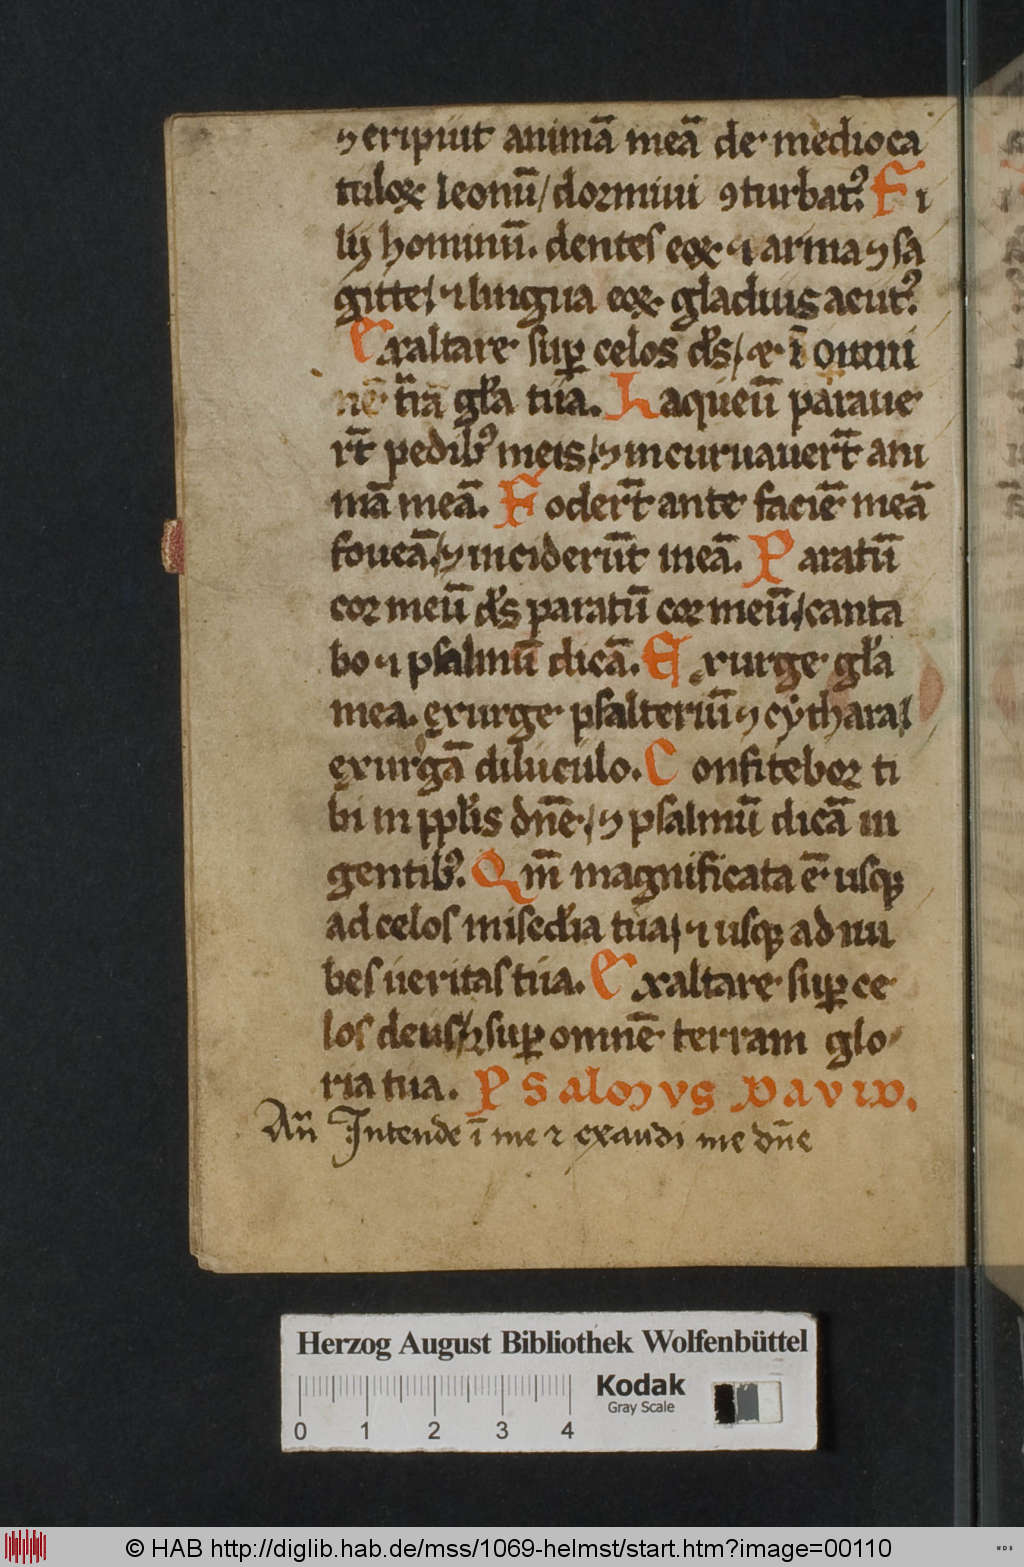 ⁊ eripiuit animā meā de medio ca
tuloꝝ leonū / dormiui ꝯturbatꝰ. Fi
lij hominū. dentes eoꝝ ⁊ arma ⁊ sa
gitte / ⁊ lingua eoꝝ gladius acutꝰ.
Exaltare suꝑ celos ds̄ / & ī omni
nē trā gła tua. Laqueū paraue
rt̄ pedibꝰ meis / ⁊ incuruauert̄ ani
mā meā. Fodert̄ ante faciē meā
foueā. / ⁊ inciderūt ineā. Paratū
cor meū ds̄ paratū cor meū / canta
bo ⁊ psalmū dicā. Exurge gła
mea. exurge psalteriū ⁊ cythara /
exurgā diluculo. Confitebor ti
bi in ppłis dn̄e / ⁊ psalmū dicā in
gentibꝰ. Qm̄ magnificata ē usqꝫ
ad celos misedia tua / ⁊ usqꝫ ad nu
bes ueritas tua. Exaltare suꝑ ce
los deus / ⁊ suꝑ omnē terram glo
ria tua. PSalmvs Davið.
An̄ Intende ī me ⁊ exaudi me dn̄e
Herzog August Bibliothek Wolfenbüttel
Kodak
Gray Scale
0 1 2 3 4
© HAB http://diglib.hab.de/mss/1069-helmst/start.htm?image=00110